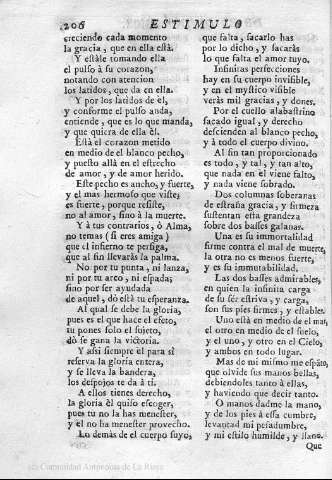 206 ESTIMULO
creciendo cada momento
la gracia, que en ella està.
Y estàle tomando ella
el pulso à su corazon,
notando con atencion
los latidos, que da en ella.
Y por los latidos de èl,
y conforme el pulso anda,
entiende, que es lo que manda,
y que quiera de ella èl.
Està el corazon metido
en medio de el blanco pecho,
y puesto allà en el estrecho
de amor, y de amor herido.
Este pecho es ancho, y fuerte,
y el mas hermoso que viste;
es fuerte, porque resiste,
no al amor, sino à la muerte.
Y à tus contrarios, ò Alma,
no temas (si eres amiga)
que el infierno te persiga,
que al fin llevaràs la palma.
No por tu punta, ni lanza,
ni por tu arco, ni espada;
sino por ser ayudada
de aquel, dò està tu esperanza.
Al qual se debe la gloria,
pues es el que hace el efeto,
tu pones solo el sujeto,
dò se gana la victoria.
Y assi siempre èl para sì
reserva la gloria entera,
y se lleva la bandera,
los despojos te da à ti.
A ellos tienes derecho,
la gloria èl quiso escoger,
pues tu no la has menester,
y el no ha menester provecho.
Lo demàs de el cuerpo suyo,
que falta, sacarlo has
por lo dicho, y sacaràs
lo que falta el amor tuyo.
Infinitas perfecciones
hay en su cuerpo invisible,
y en el mystico visible
veràs mil gracias, y dones.
Por el cuello alabastrino
sacado igual, y derecho
descienden al blanco pecho,
y à todo el cuerpo divino.
Al fin tan proporcionado
es todo, y tal, y tan alto,
que nada en èl viene falto,
y nada viene sobrado.
Dos columnas soberanas
de estraña gracia, y firmeza
sustentan esta grandeza
sobre dos bassas galanas.
Una es su immortalidad
firme contra el mal de muerte,
la otra no es menos fuerte,
y es su immutabilidad.
Las dos basses admirables,
en quien la infinita carga
de su sèr estriva, y carga,
son sus pies firmes, y estables.
Uno està en medio de el mar,
el otro en medio de el suelo,
y el uno, y otro en el Cielo,
y ambos en todo lugar.
Mas de mi mismo me espãto,
que olvide sus manos bellas,
debiendoles tanto à ellas,
y haviendo que decir tanto.
O manos dadme la mano,
y de los pies à essa cumbre,
levantad mi pesadumbre,
y mi estilo humilde, y llano.
Que
(c) Comunidad Autónoma de La Rioja